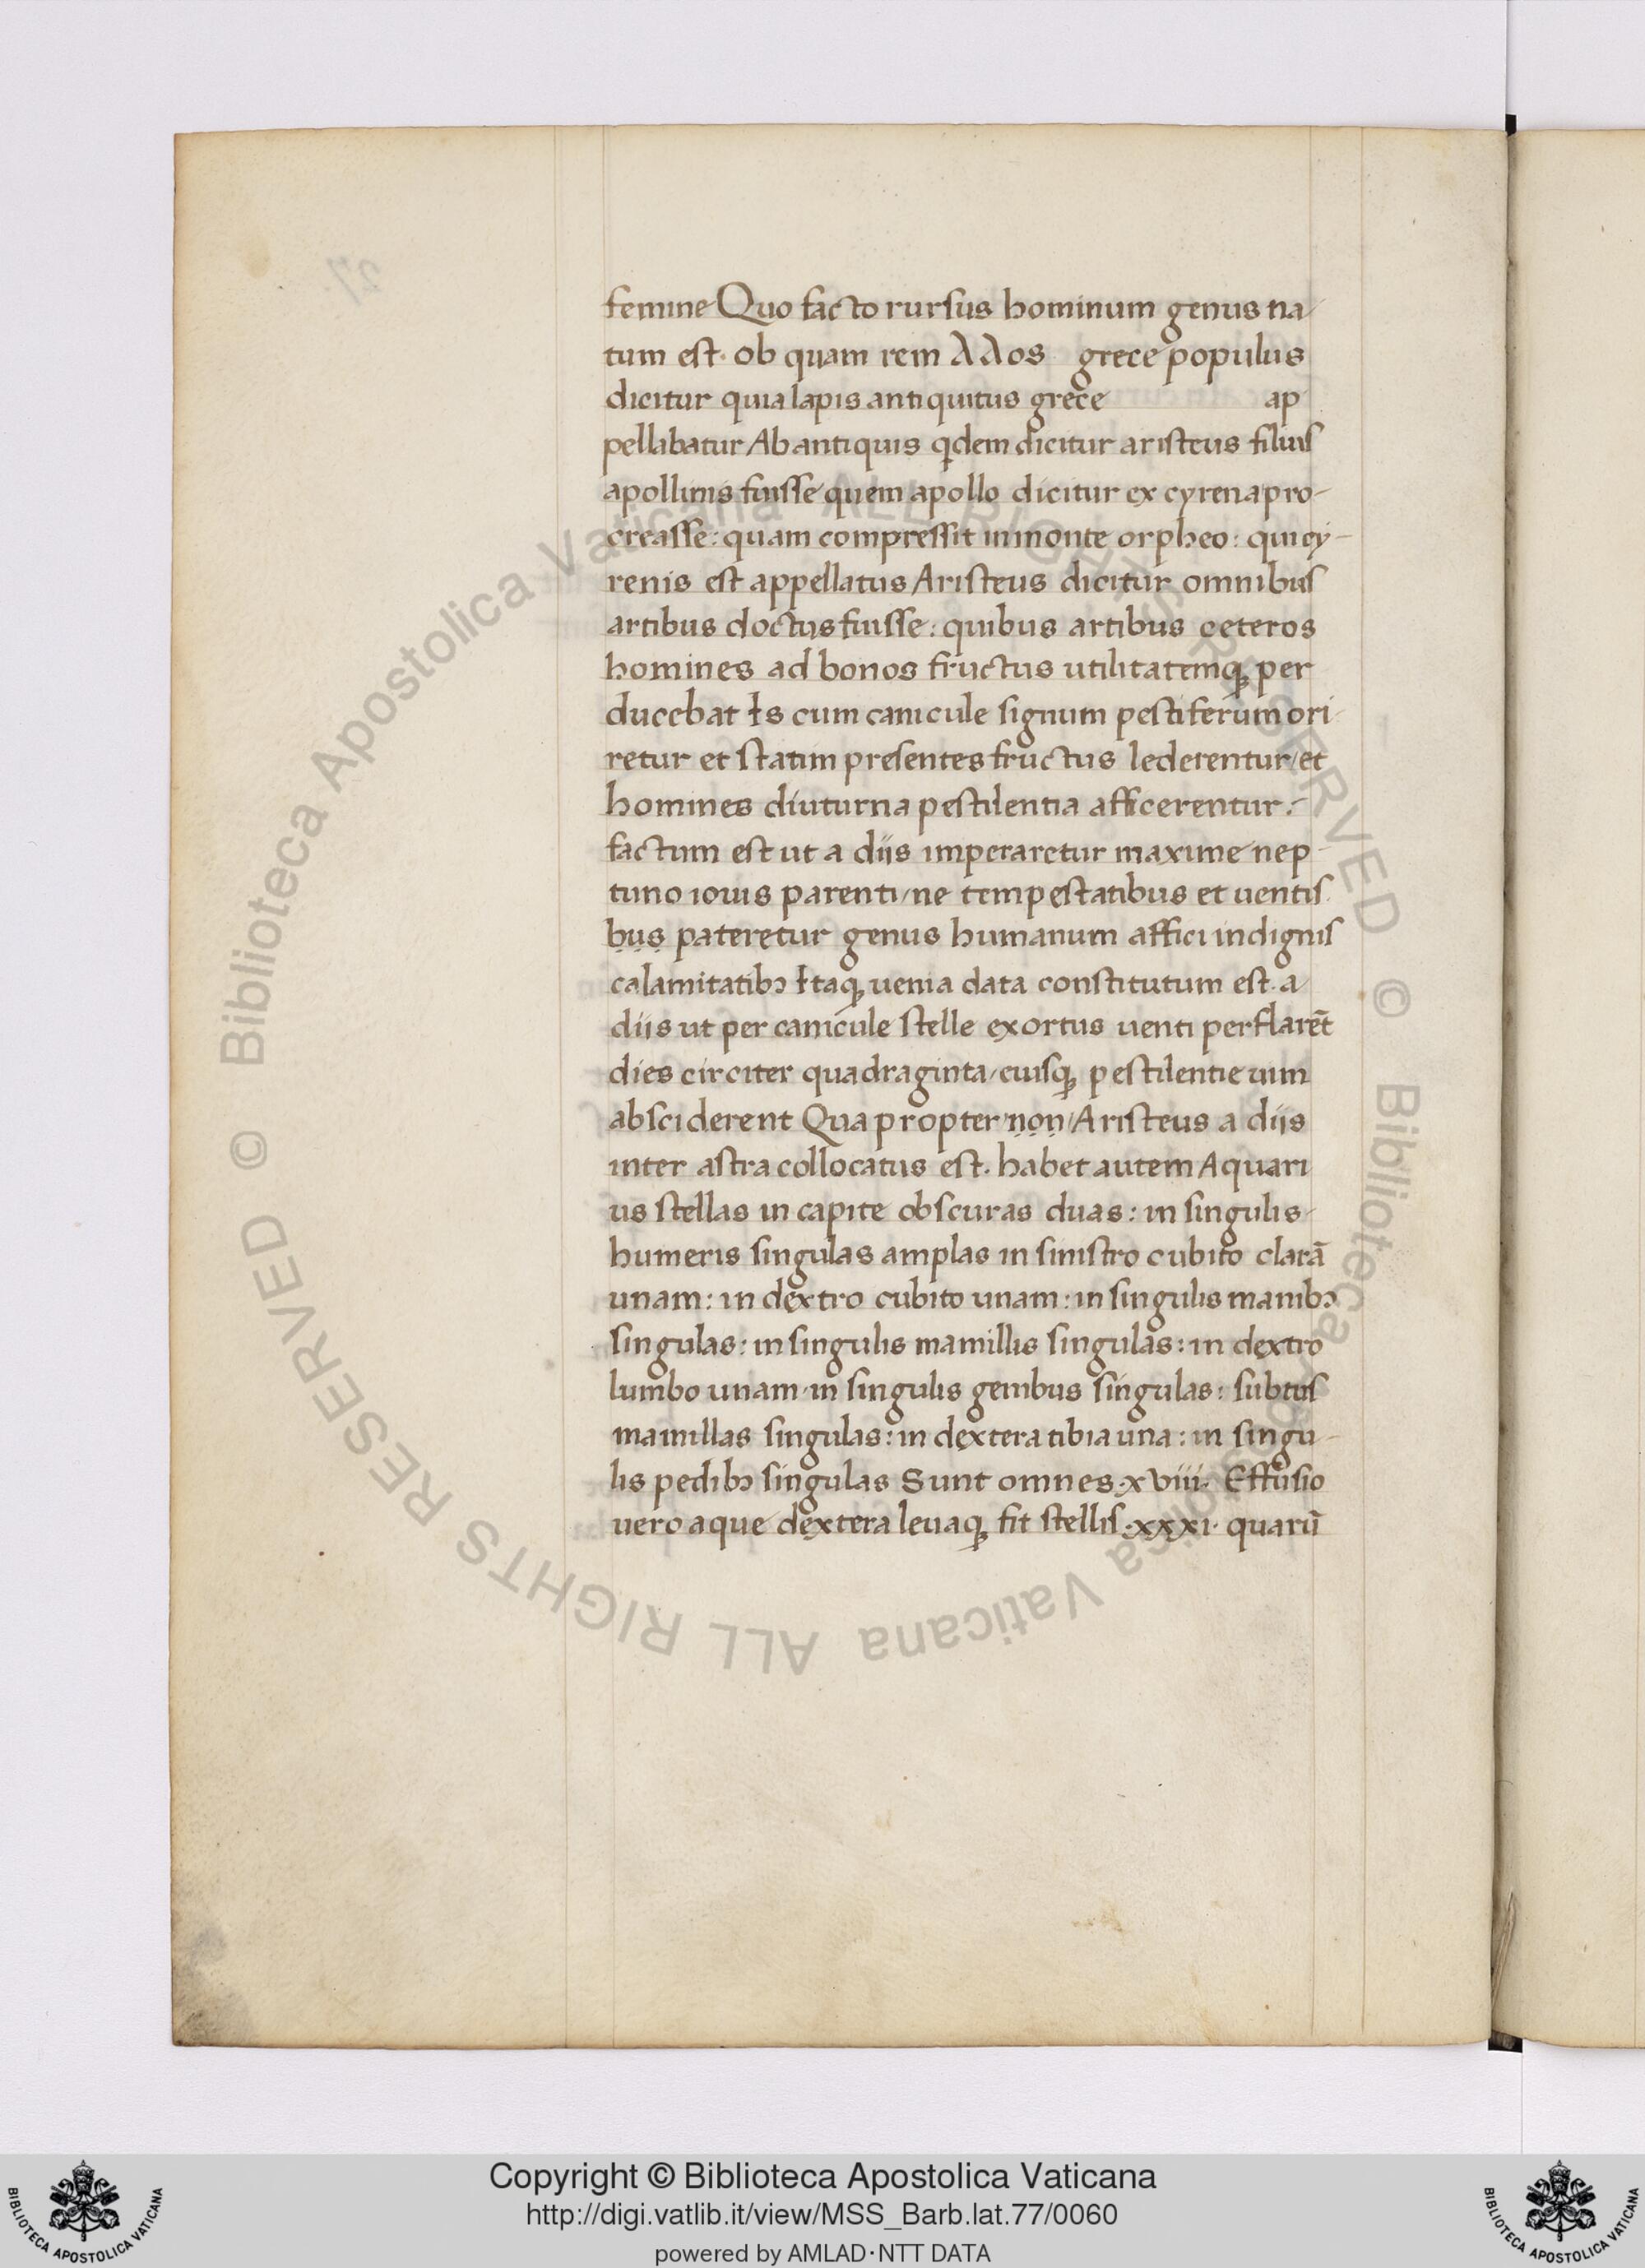 femine Quo facto rursus hominum genus na
tum est. ob quam rem λ λos grece populus
dicitur quia lapis antiquitus grece ap
pellabatur Ab antiquis qdem dicitur aristeus filius
apollinis fuisse quem apollo dicitur ex cyrena pro-
creasse: quam compressit in monte orpheo: qui cy-
renis est appellatus Aristeus dicitur omnibus
artibus doctus fuisse: quibus artibus ceteros
homines ad bonos fructus utilitatemq; per
ducebat Is cum canicule signum pestiferum ori
retur et statim presentes fructus lederentur/et
homines diuturna pestilentia afficerentur:-
factum est ut a diis imperaretur maxime nep-
tuno iouis parenti/ne tempestatibus et uentis
bus pateretur genus humanum affici indignis
calamitatibꝫ Itaq; uenia data constitutum est. a
diis ut per canicule stelle exortus uenti perflarēt
dies circiter quadraginta/eiusq; pestilentie uim
absciderent Qua propter non/Aristeus a diis
inter astra collocatus est. habet autem Aquari
us stellas in capite obscuras duas: in singulis
humeris singulas amplas in sinistro cubito clarā
unam: in dextro cubito unam: in singulis manibꝫ
singulas: in singulis mamillis singulas: in dextro
lumbo unam/in singulis genibus singulas: subtus
mamillas singulas: in dextera tibia una: in singu-
lis pedibꝫ singulas Sunt omnes·xviii· Effusio
uero aque dextera leuaq; fit stellis·xxxi· quarū
27
Copyright © Biblioteca Apostolica Vaticana
http://digi.vatlib.it/view/MSS_Barb.lat.77/0060
powered by AMLAD·NTT DATA
BIBLIOTECA APOSTOLICA VATICANA
BIBLIOTECA APOSTOLICA VATICANA
© Biblioteca Apostolica Vaticana ALL RIGHTS RESERVED © Biblioteca Apostolica Vaticana ALL RIGHTS RESERVED